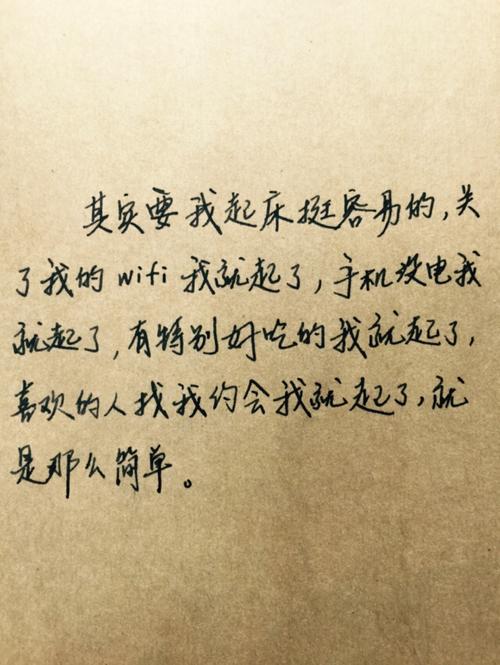 其实要我起床挺容易的,关
了我的wifi我就起了,手机没电我
就起了,有特别好吃的我就起了,
喜欢的人找我约会我就起了,就
是那么简单。